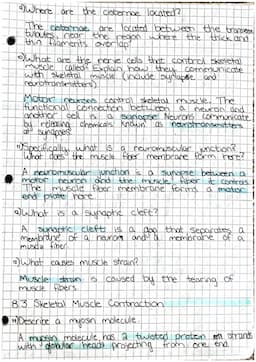 Where are the cisternae located?
The cisternae are located between the transverse
tubules, near the region where the thick and
thin filaments overlap
What are the nerve cells that control skeletal
muscle called? Explain how they communicate
with skeletal muscle (include synapse and
neurotransmitters)
Motor neurons control skeletal muscle. The
functional connection between a neuron and
another cell is a synapse Neurons communicate
by releasing chemicals known as neurotransmitters
at synapses
Specifically what is a neuromuscular junction?
What does the muscle fiber membrane form here?
A neuromuscular junction is a synapse between a
motor neuron and the muscle fiber it controls
The muscle fiber membrane forms a motor
end plate here.
What is a synaptic cleft?
A synaptic cleft is a gap that separates a
membrane of a neuron and a membrane of a
muscle fiber.
What causes muscle strain?
Muscle strain is caused by the tearing of
muscle fibers
8.3 Skeletal Muscle Contraction
Describe a myosin molecule.
A myosin molecule has 2 twisted protein strands
with globular heads projecting from one end.